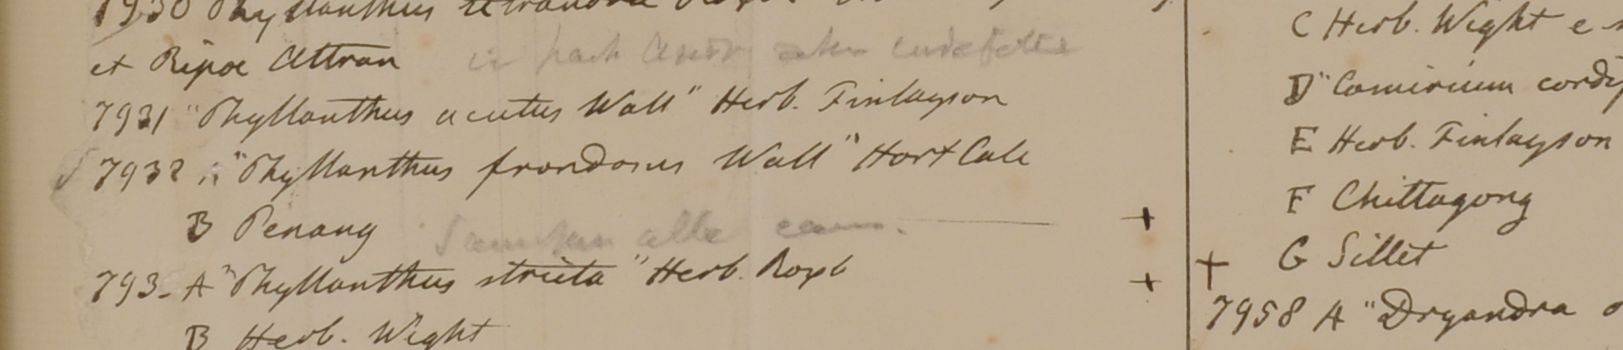 7930 Phyllanthus tetrandra Roxb
et Ripae Attran in part
7931 "Phyllanthus acutus Wall" Herb. Finlayson
7932 "Phyllanthus frondosus Wall" Hort Calc
B Penang +
793- A "Phyllanthus stricta" Herb. Roxb +
B Herb. Wight
C Herb. Wight e
D "Camirium
E Herb. Finlayson
F Chittagong
+ G Sillet
7958 A "Dryandra